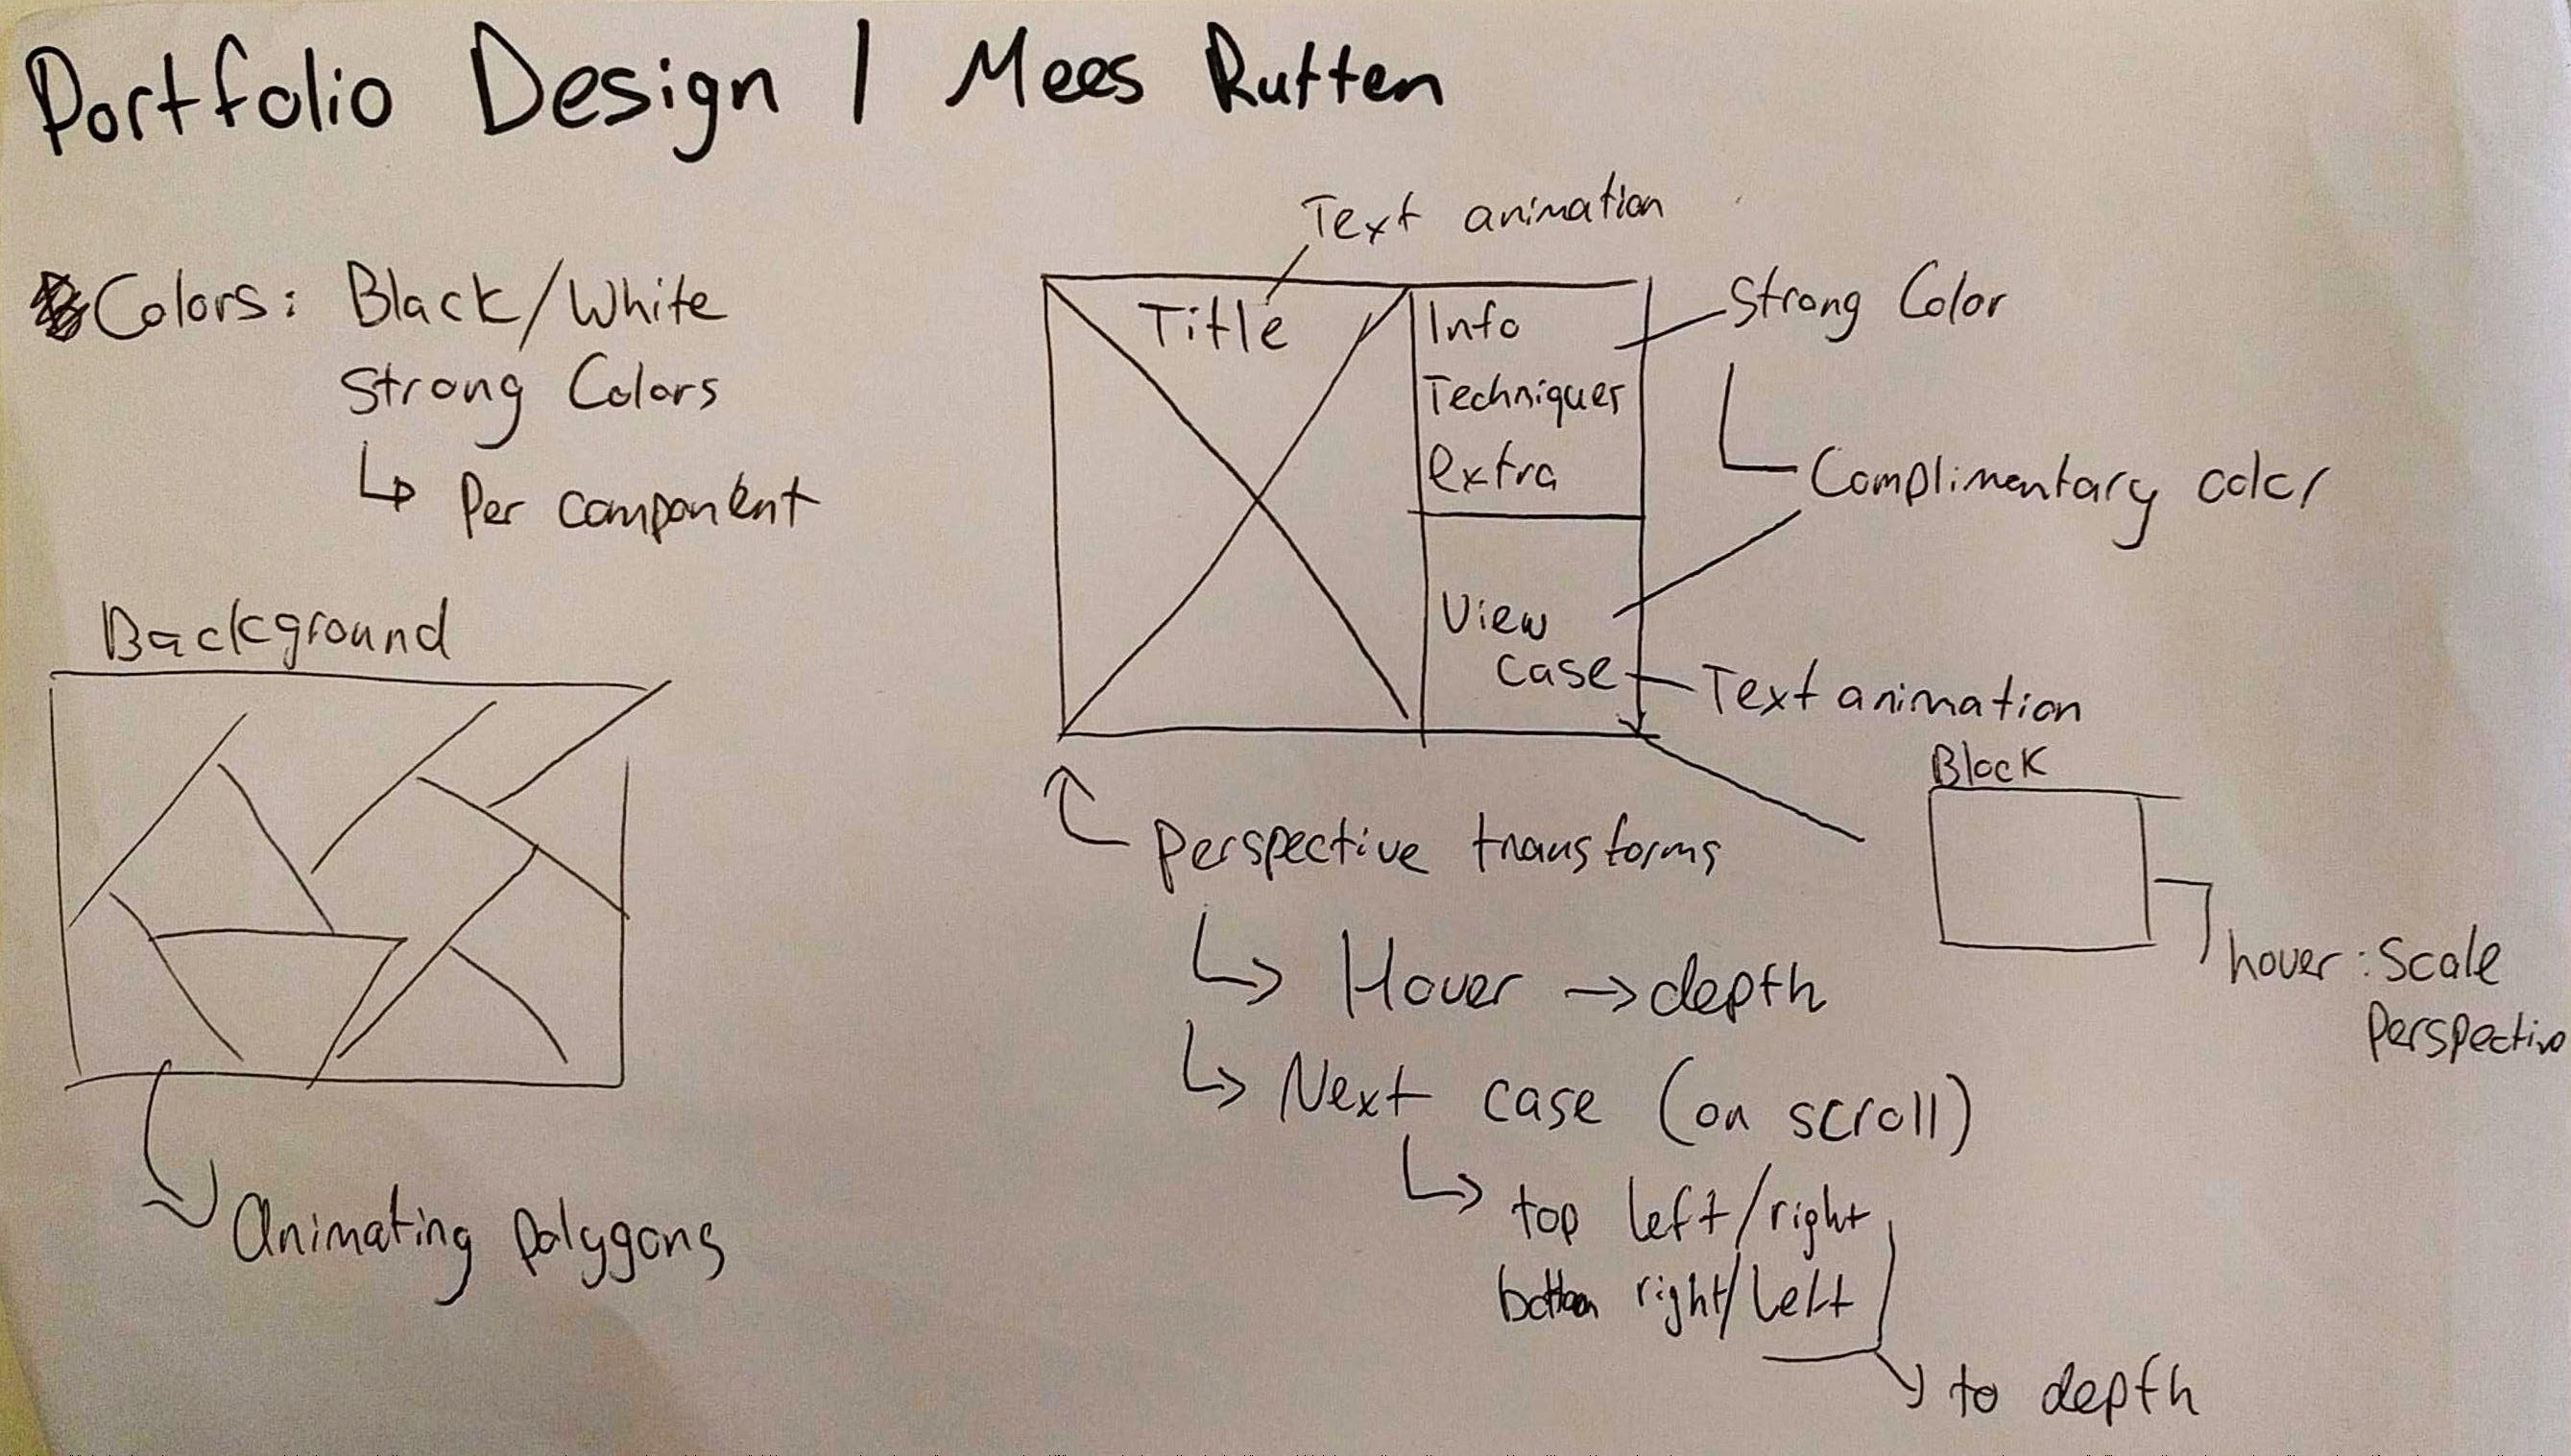 Portfolio Design | Mees Rutten
Colors: Black/White
Strong Colors
↳ Per component
Background
Animating polygons
Text animation
Title
Info
Techniques
extra
View
case
Strong Color
Complimentary color
Text animation
Perspective transforms
↳ Hover → depth
↳ Next case (on scroll)
↳ top left/right
bottom right/left
to depth
Block
hover: Scale
Perspective